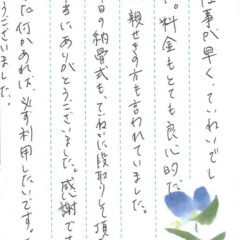 仕事が早く、ていねいでし
。料金もとても良心的だ
親せきの方も言われていました。
日の納骨式も、ていねいに段取りして頂
にありがとうございました。感謝で
何かあれば、必ず利用したいです。
うございました。